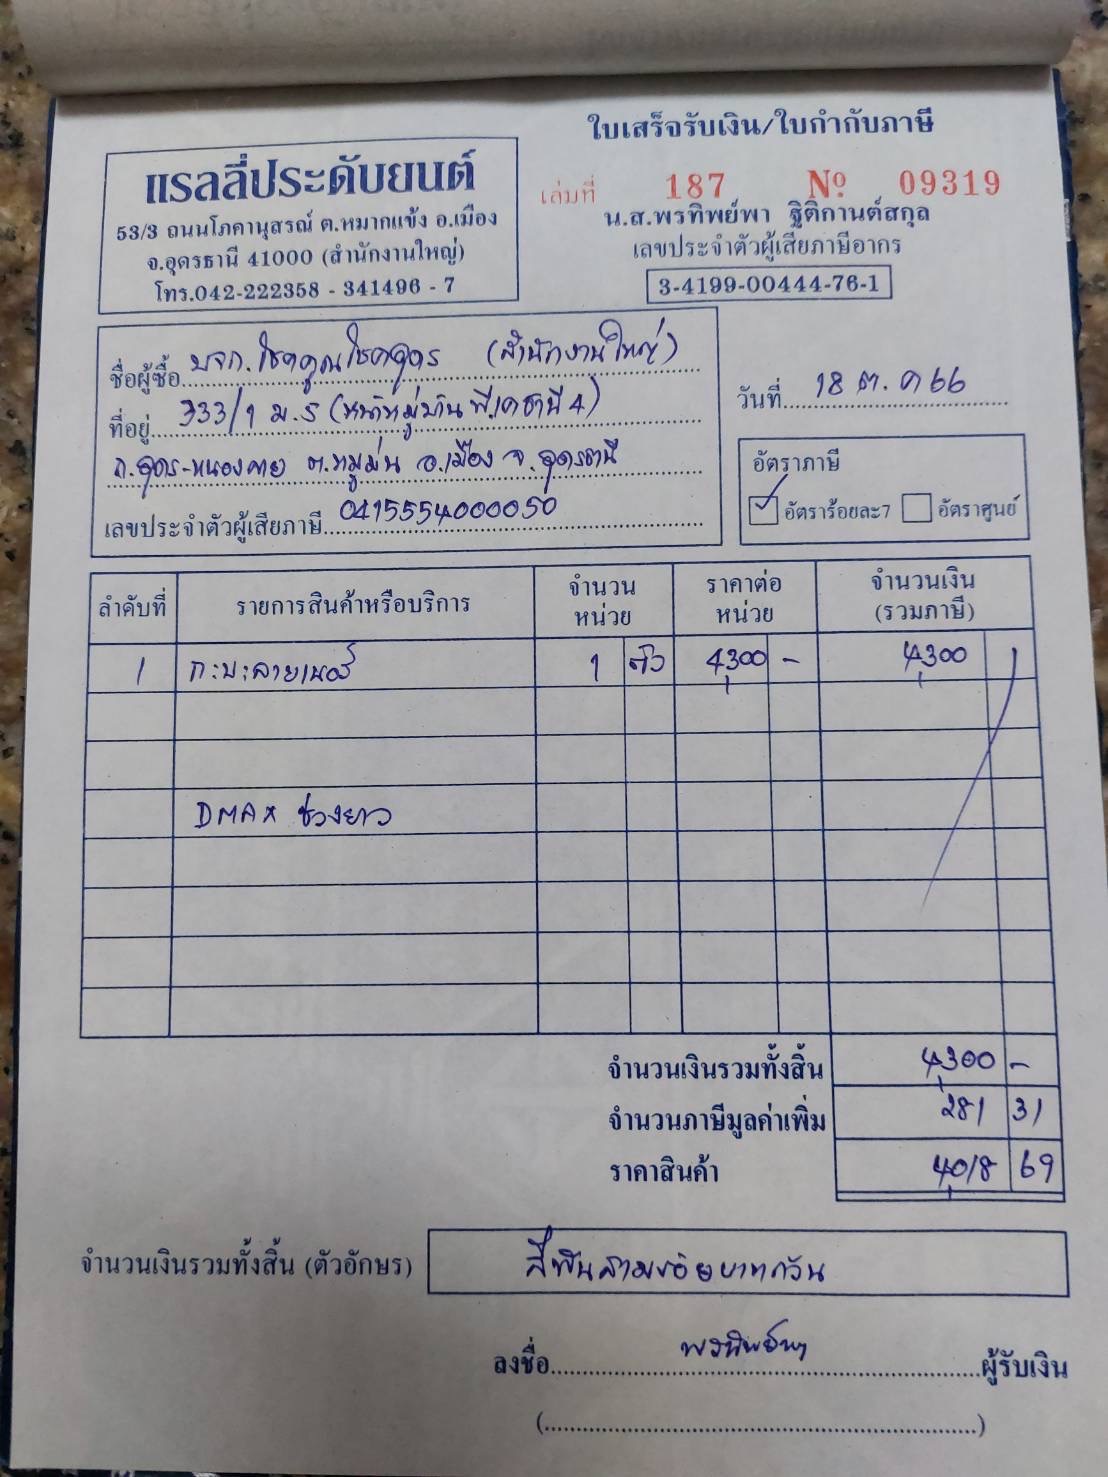 ใบเสร็จรับเงิน/ใบกำกับภาษี
แรลลี่ประดับยนต์
53/3 ถนนโภคานุสรณ์ ต.หมากแข้ง อ.เมือง
จ.อุดรธานี 41000 (สำนักงานใหญ่)
โทร.042-222358 - 341496 - 7
เล่มที่ 187 № 09319
น.ส.พรทิพย์พา ฐิติกานต์สกุล
เลขประจำตัวผู้เสียภาษีอากร
3-4199-00444-76-1
ชื่อผู้ซื้อ บจก. โชคคูณโชคอุดร (สำนักงานใหญ่)
ที่อยู่ 333/1 ม.5 (หน้าหมู่บ้าน พี.เคธานี 4)
ถ.อุดร-หนองคาย ต.หมูม่น อ.เมือง จ.อุดรธานี
เลขประจำตัวผู้เสียภาษี 0415554000050
วันที่ 18 ต.ค 66
อัตราภาษี
อัตราร้อยละ7 อัตราศูนย์
ลำดับที่ รายการสินค้าหรือบริการ จำนวนหน่วย ราคาต่อหน่วย จำนวนเงิน (รวมภาษี)
1 กะบะลายเนอร์ 1 ตัว 4,300 - 4,300
DMAX ช่วงยาว
จำนวนเงินรวมทั้งสิ้น 4,300 -
จำนวนภาษีมูลค่าเพิ่ม 281 31
ราคาสินค้า 4,018 69
จำนวนเงินรวมทั้งสิ้น (ตัวอักษร) สี่พันสามร้อยบาทถ้วน
ลงชื่อ พรทิพย์พา ผู้รับเงิน
(....................)